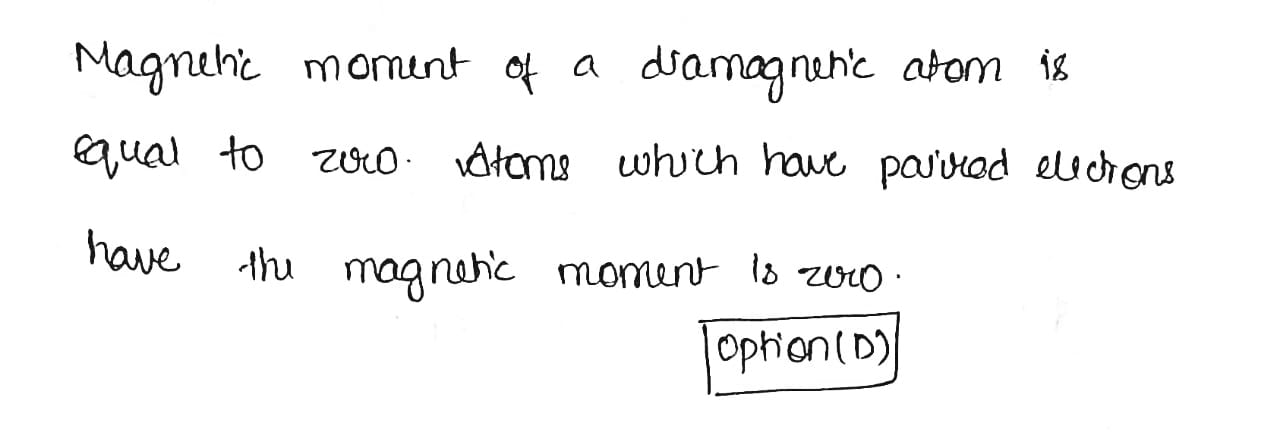 Magnetic moment of a diamagnetic atom is
equal to zero. Atoms which have paired electrons
have the magnetic moment is zero.
Option (D)